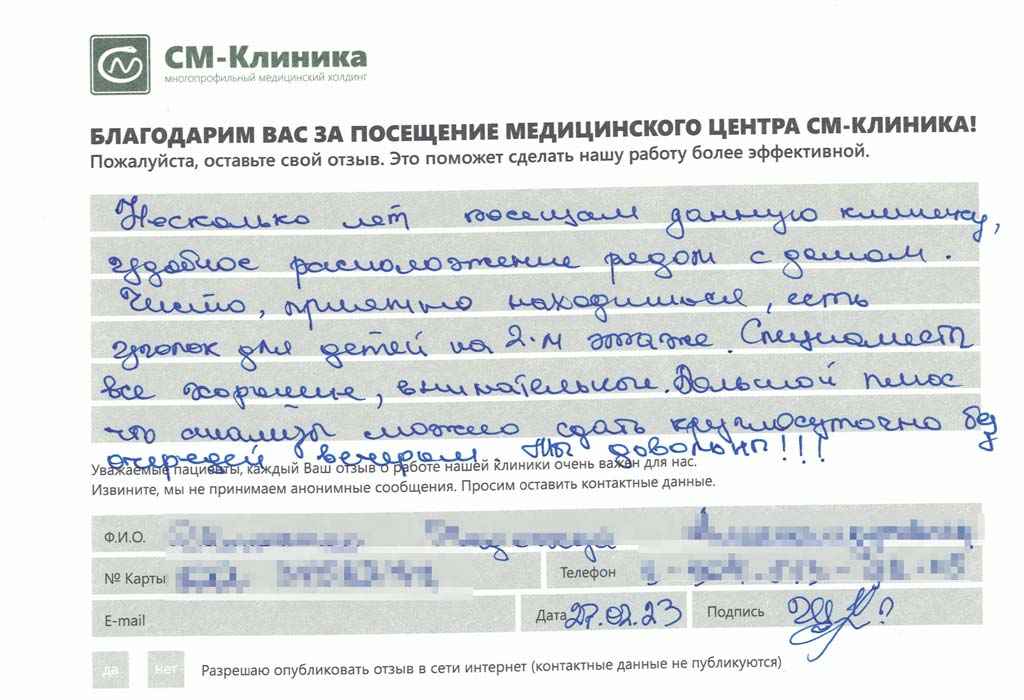 СМ-Клиника
многопрофильный медицинский холдинг
БЛАГОДАРИМ ВАС ЗА ПОСЕЩЕНИЕ МЕДИЦИНСКОГО ЦЕНТРА СМ-КЛИНИКА!
Пожалуйста, оставьте свой отзыв. Это поможет сделать нашу работу более эффективной.
Несколько лет посещам данную клинику,
удобное расположение рядом с домом.
Чисто, приятно находиться, есть
уголок для детей на 2-м этаже. Специалисты
все хорошие, внимательные. Большой плюс
что анализы можно сдать круглосуточно без
очередей вечером. Мы довольны!!!
Уважаемые пациенты, каждый Ваш отзыв о работе нашей клиники очень важен для нас.
Извините, мы не принимаем анонимные сообщения. Просим оставить контактные данные.
Ф.И.О.
№ Карты Телефон
E-mail Дата 27.02.23 Подпись
да нет Разрешаю опубликовать отзыв в сети интернет (контактные данные не публикуются)